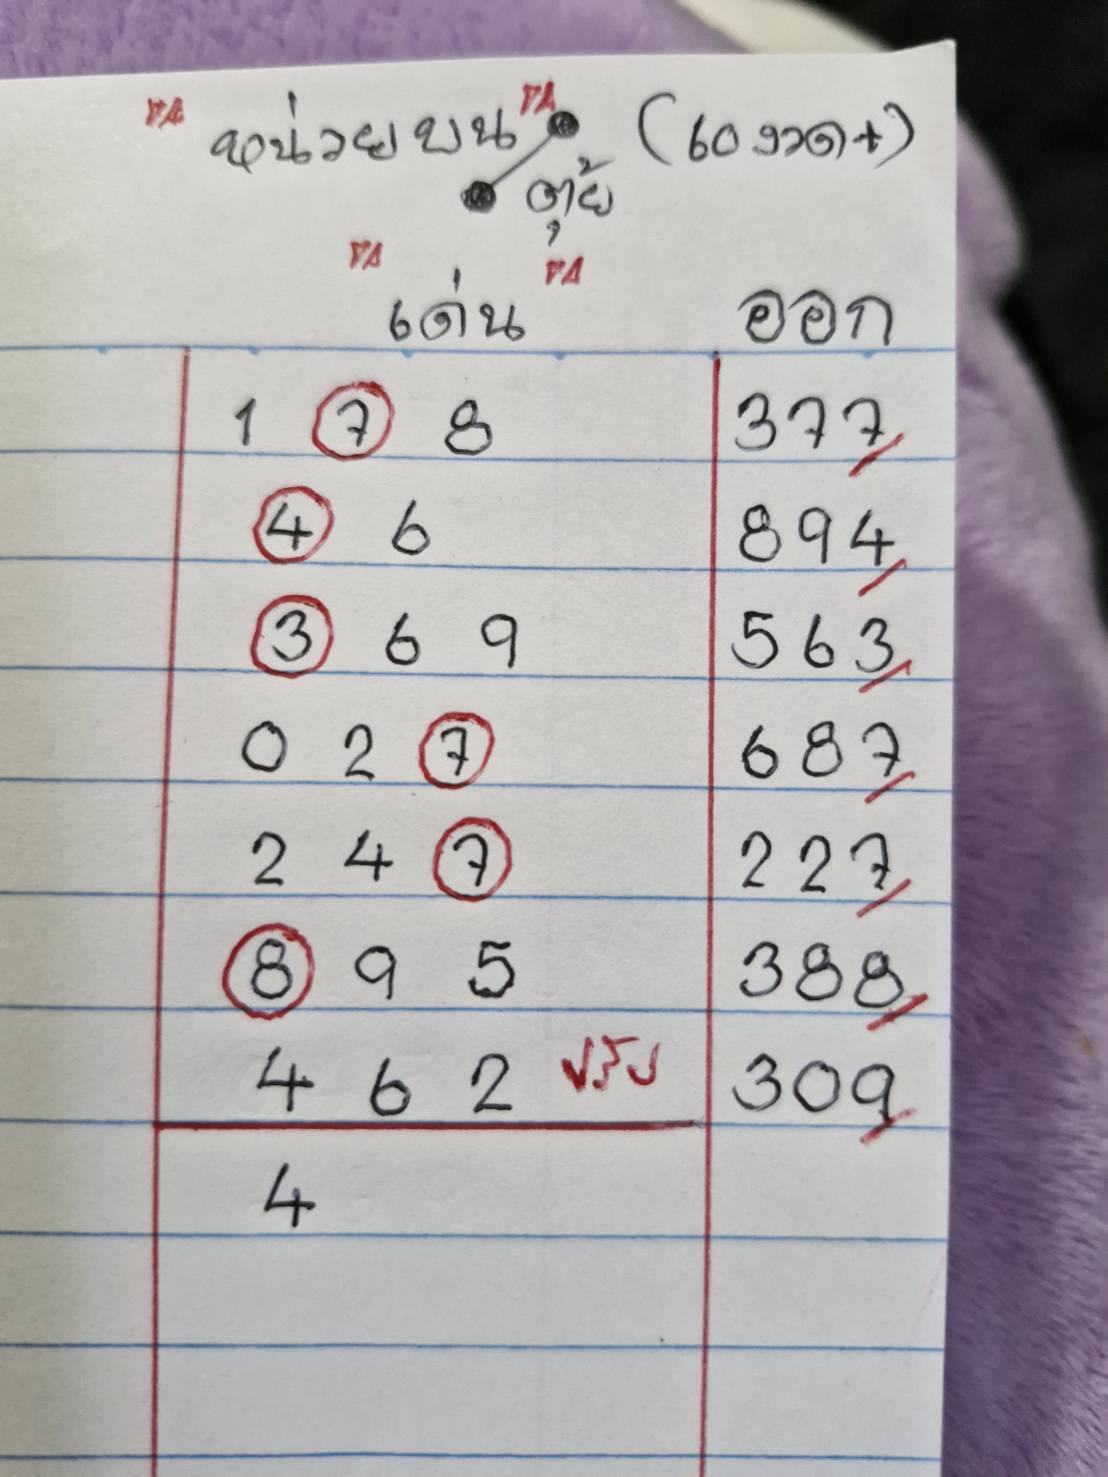 หน่วยบน (60งวด+)
ตุ้ย
เด่น ออก
1 7 8 377
4 6 894
3 6 9 563
0 2 7 687
2 4 7 227
8 9 5 388
4 6 2 ปรับ 309
4